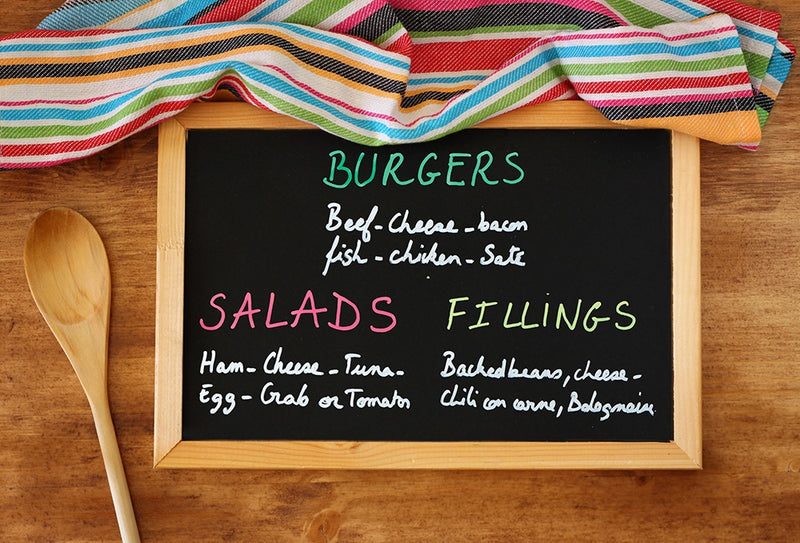 BURGERS
Beef - Cheese - bacon
fish - chicken - Sate
SALADS
Ham - Cheese - Tuna -
Egg - Crab or Tomato
FILLINGS
Backedbeans, cheese -
Chili con carne, Bolognaise